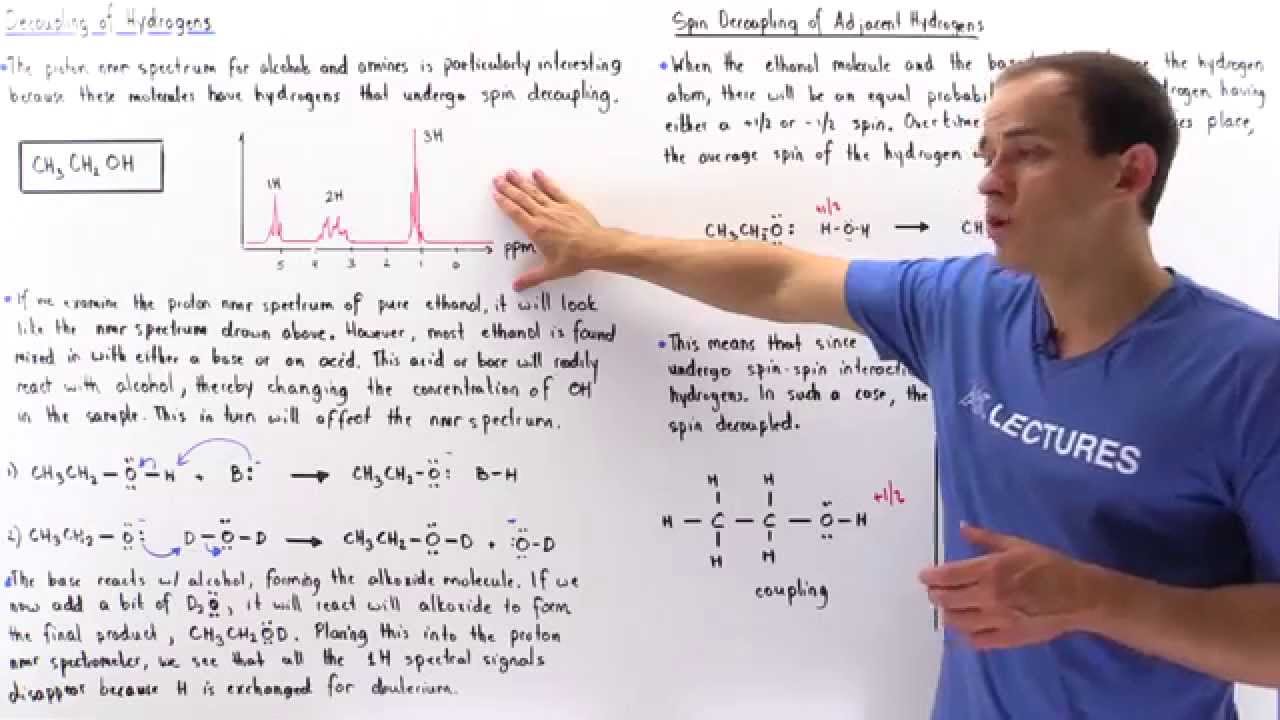 Decoupling of Hydrogens
The proton nmr spectrum for alcohols and amines is particularly interesting
because these molecules have hydrogens that undergo spin decoupling.
CH3 CH2 OH
1H
2H
3H
ppm
5 4 3 2 1 0
If we examine the proton nmr spectrum of pure ethanol, it will look
like the nmr spectrum drawn above. However, most ethanol is found
mixed in with either a base or an acid. This acid or bace will radily
react with alcohol, thereby changing the concentration of OH
in the sample. This in turn will affect the nmr spectrum.
1) CH3CH2 - O - H + B: → CH3CH2 - O: - B-H
2) CH3CH2 - O: - D - O - D → CH3CH2 - O - D + - :O - D
The base reacts w/ alcohol, forming the alkoxide molecule. If we
now add a bit of D2O, it will react will alkoxide to form
the final product, CH3CH2OD. Placing this into the proton
nmr spectrometer, we see that all the 1H spectral signals
disappear because H is exchanged for deulerium.
Spin Decoupling of Adjacent Hydrogens
When the ethanol molecule and the the hydrogen
atom, there will be an equal having
either a +1/2 or -1/2 spin. Overtime place,
the average spin of the hydrogen
+1/2
CH3CH2O: H-O-H → CH
This means that since
undergo spin-spin
hydrogens. In such a case, the
spin decoupled.
H H
H - C - C - O - H +1/2
H H
coupling
AK LECTURES